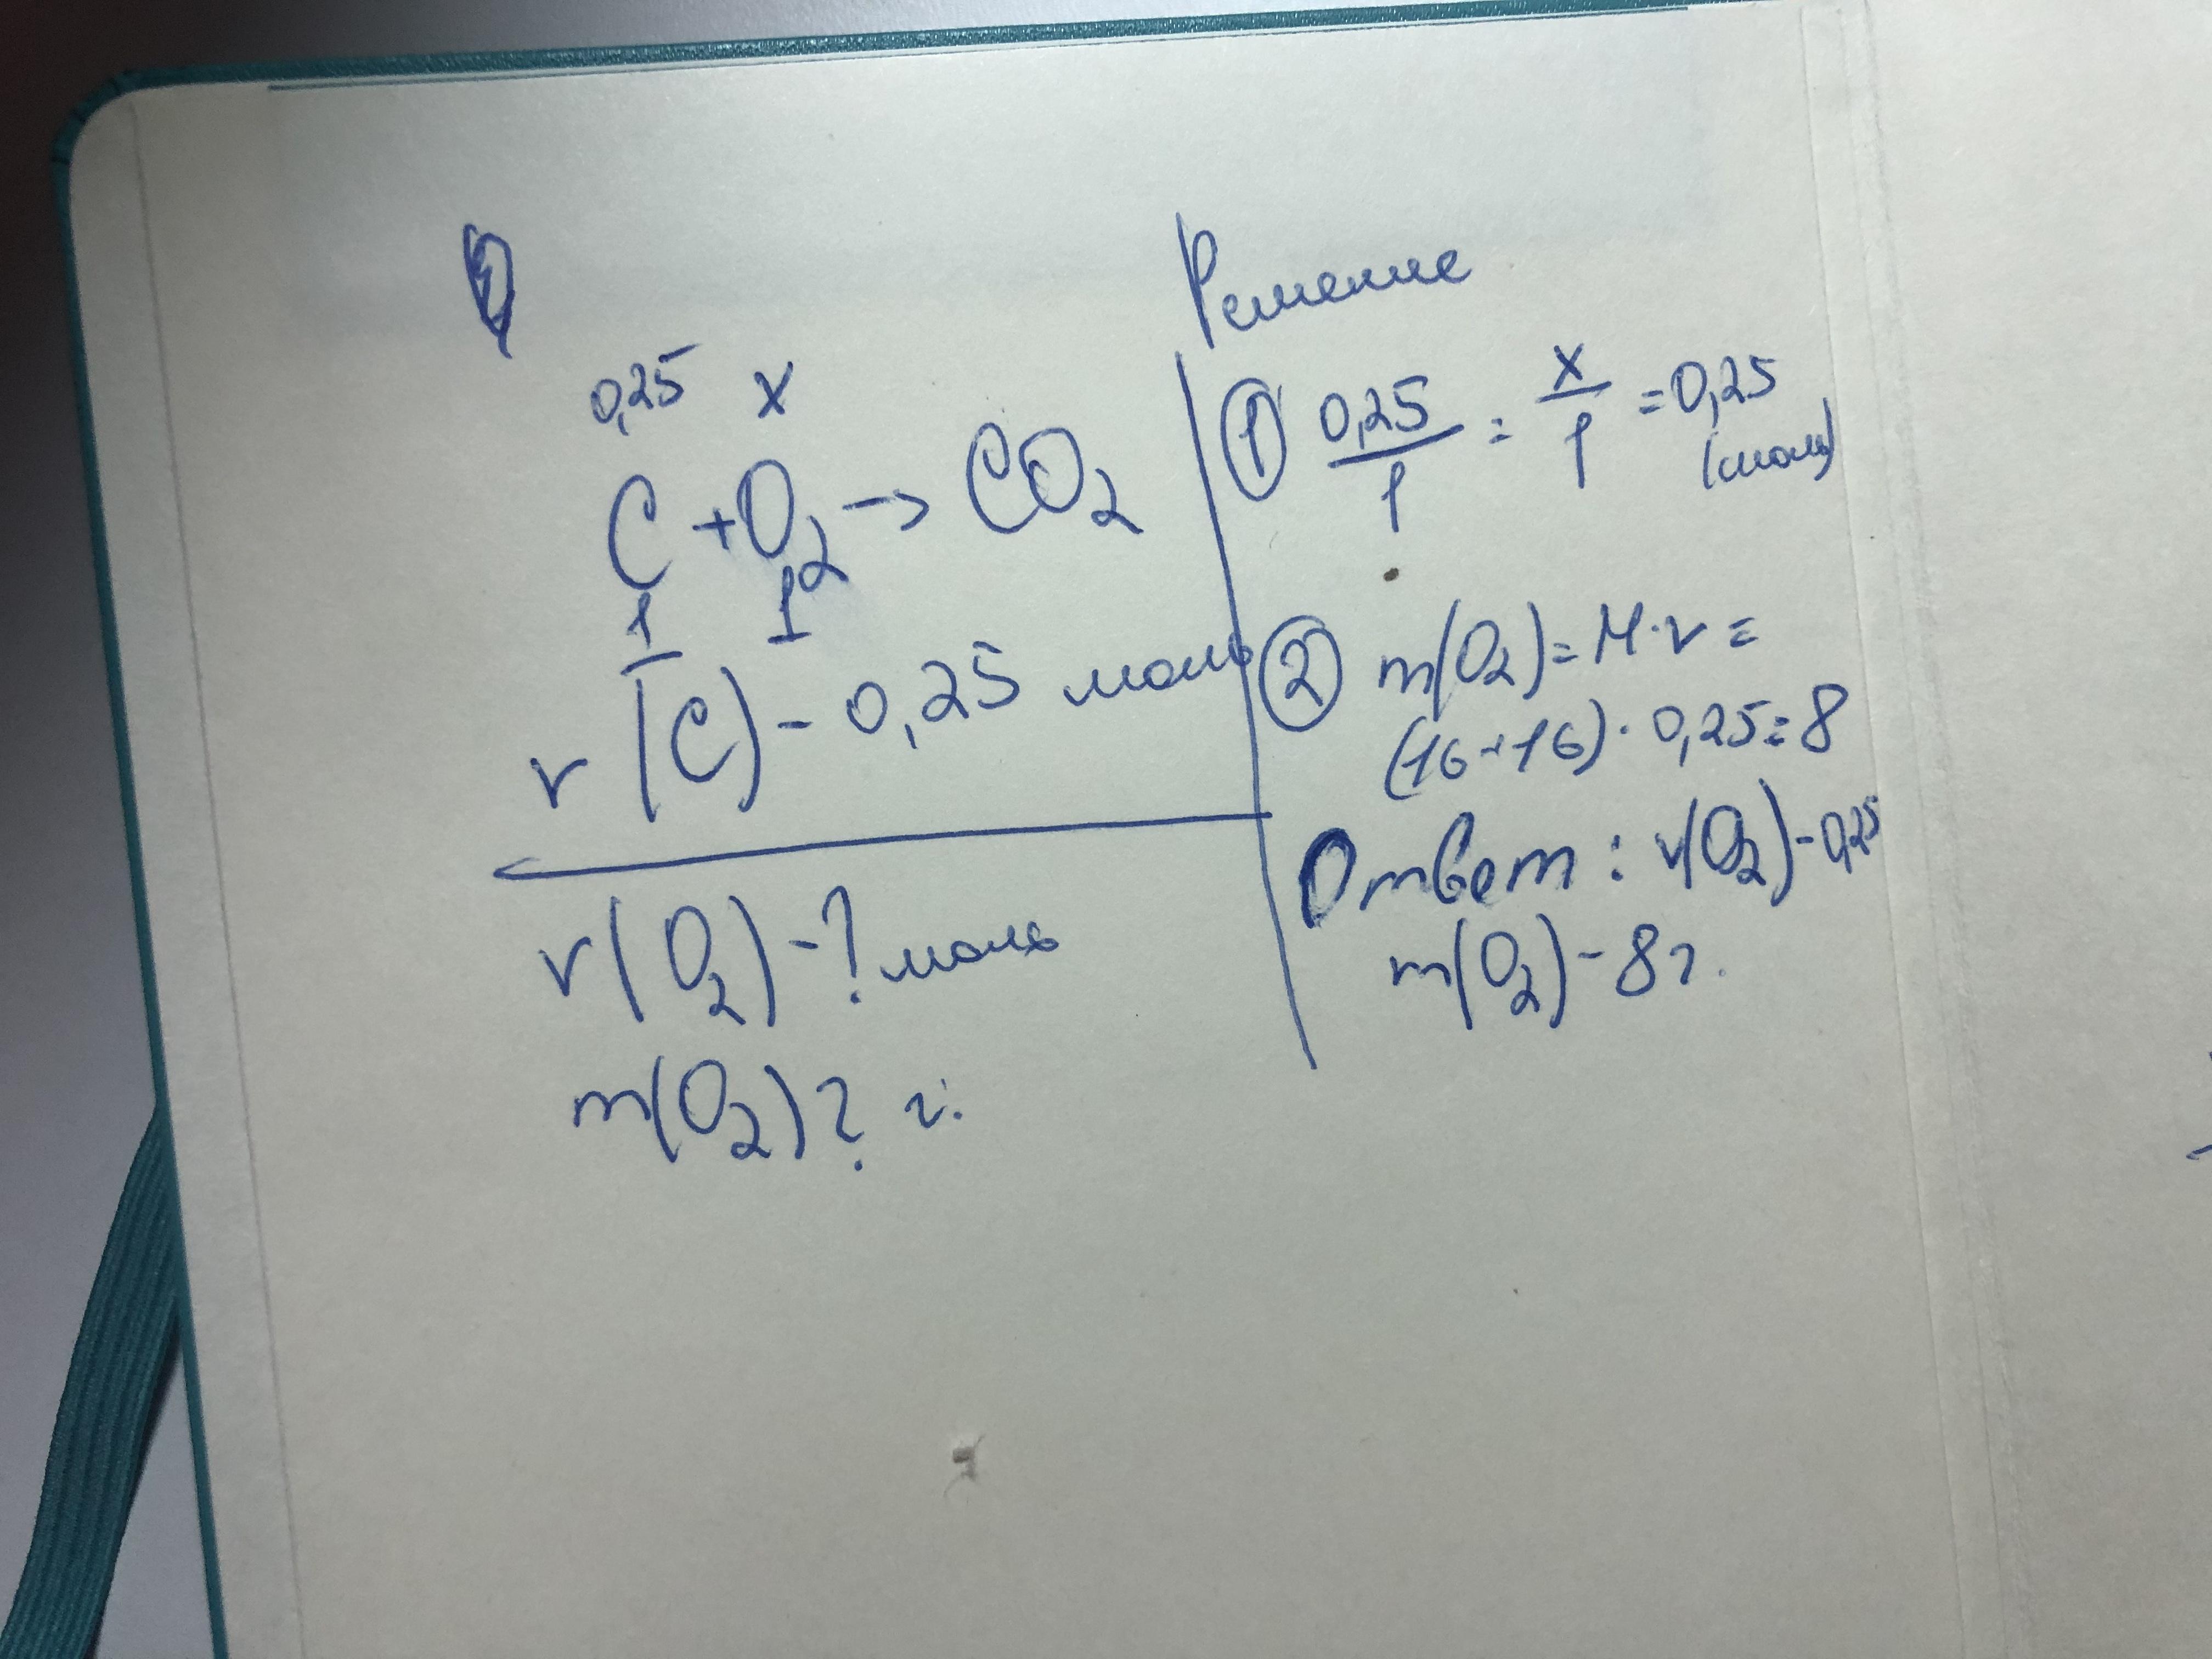 0,25 x
C + O₂ → CO₂
1 1
ν(C) - 0,25 моль
ν(O₂) - ? моль
m(O₂) ? г.
Решение
① 0,25/1 = x/1 = 0,25
(моль)
② m(O₂) = M · ν =
(16+16) · 0,25 = 8
Ответ: ν(O₂) - 0,25
m(O₂) - 8 г.